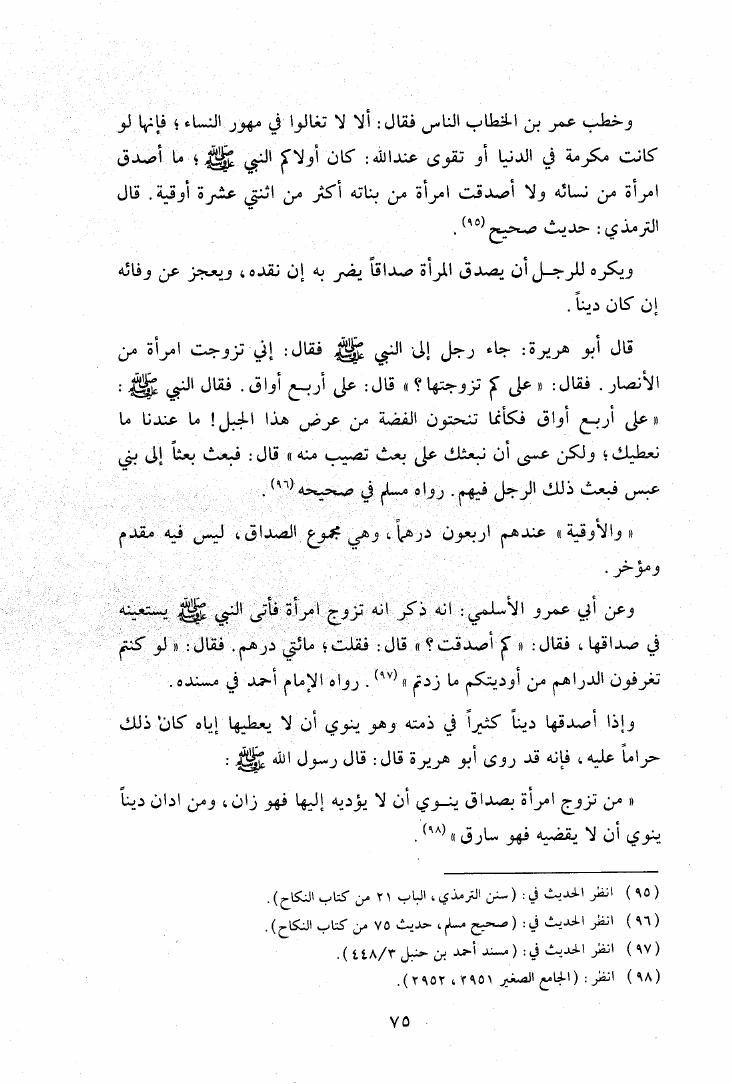 وخطب عمر بن الخطاب الناس فقال: ألا لا تغالوا في مهور النساء؛ فإنها لو
كانت مكرمة في الدنيا أو تقوى عندالله: كان أولاكم النبي ﷺ؛ ما أصدق
امرأة من نسائه ولا أصدقت امرأة من بناته أكثر من اثنتي عشرة أوقية. قال
الترمذي: حديث صحيح(٩٥).
ويكره للرجل أن يصدق المرأة صداقاً يضر به إن نقده، ويعجز عن وفائه
إن كان ديناً.
قال أبو هريرة: جاء رجل إلى النبي ﷺ فقال: إني تزوجت امرأة من
الأنصار. فقال: «على كم تزوجتها؟» قال: على أربع أواق. فقال النبي ﷺ:
«على أربع أواق فكأنما تنحتون الفضة من عرض هذا الجبل! ما عندنا ما
نعطيك؛ ولكن عسى أن نبعثك على بعث تصيب منه» قال: فبعث بعثاً إلى بني
عبس فبعث ذلك الرجل فيهم. رواه مسلم في صحيحه(٩٦).
«والأوقية» عندهم اربعون درهماً، وهي مجموع الصداق، ليس فيه مقدم
ومؤخر.
وعن أبي عمرو الأسلمي: انه ذكر انه تزوج امرأة فأتى النبي ﷺ يستعينه
في صداقها، فقال: «كم أصدقت؟» قال: فقلت؛ مائتي درهم. فقال: «لو كنتم
تغرفون الدراهم من أوديتكم ما زدتم»(٩٧). رواه الإمام أحمد في مسنده.
وإذا أصدقها ديناً كثيراً في ذمته وهو ينوي أن لا يعطيها إياه كان ذلك
حراماً عليه، فإنه قد روى أبو هريرة قال: قال رسول الله ﷺ:
«من تزوج امرأة بصداق ينوي أن لا يؤديه إليها فهو زان، ومن ادان ديناً
ينوي أن لا يقضيه فهو سارق»(٩٨).
(٩٥) انظر الحديث في: (سنن الترمذي، الباب ٢١ من كتاب النكاح).
(٩٦) انظر الحديث في: (صحيح مسلم، حديث ٧٥ من كتاب النكاح).
(٩٧) انظر الحديث في: (مسند أحمد بن حنبل ٤٤٨/٣).
(٩٨) انظر: (الجامع الصغير ٢٩٥١، ٢٩٥٢).
٧٥